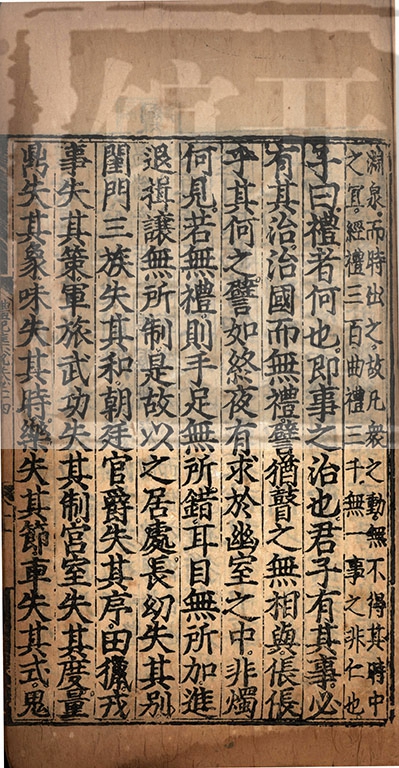 淵泉而時出之故凡衆之動無不得其時中
之宜經禮三百曲禮三千無一事之非仁也
子曰禮者何也即事之治也君子有其事必
有其治治國而無禮譬猶瞽之無相與倀倀
乎其何之譬如終夜有求於幽室之中非燭
何見若無禮則手足無所錯耳目無所加進
退揖讓無所制是故以之居處長幼失其別
閨門三族失其和朝廷官爵失其序田獵戎
事失其策軍旅武功失其制宮室失其度量
鼎失其象味失其時樂失其節車失其式鬼